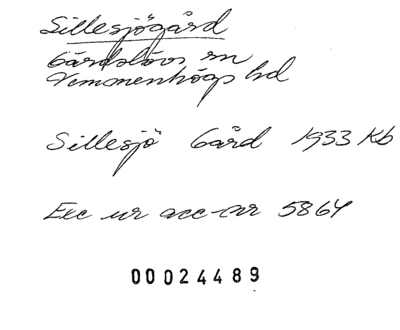 Sillesjögård
Gärdslövs sn
Vemmenhögs hd
Sillesjö Gård 1933 Kb
Exc ur acc-nr 5864
00024489